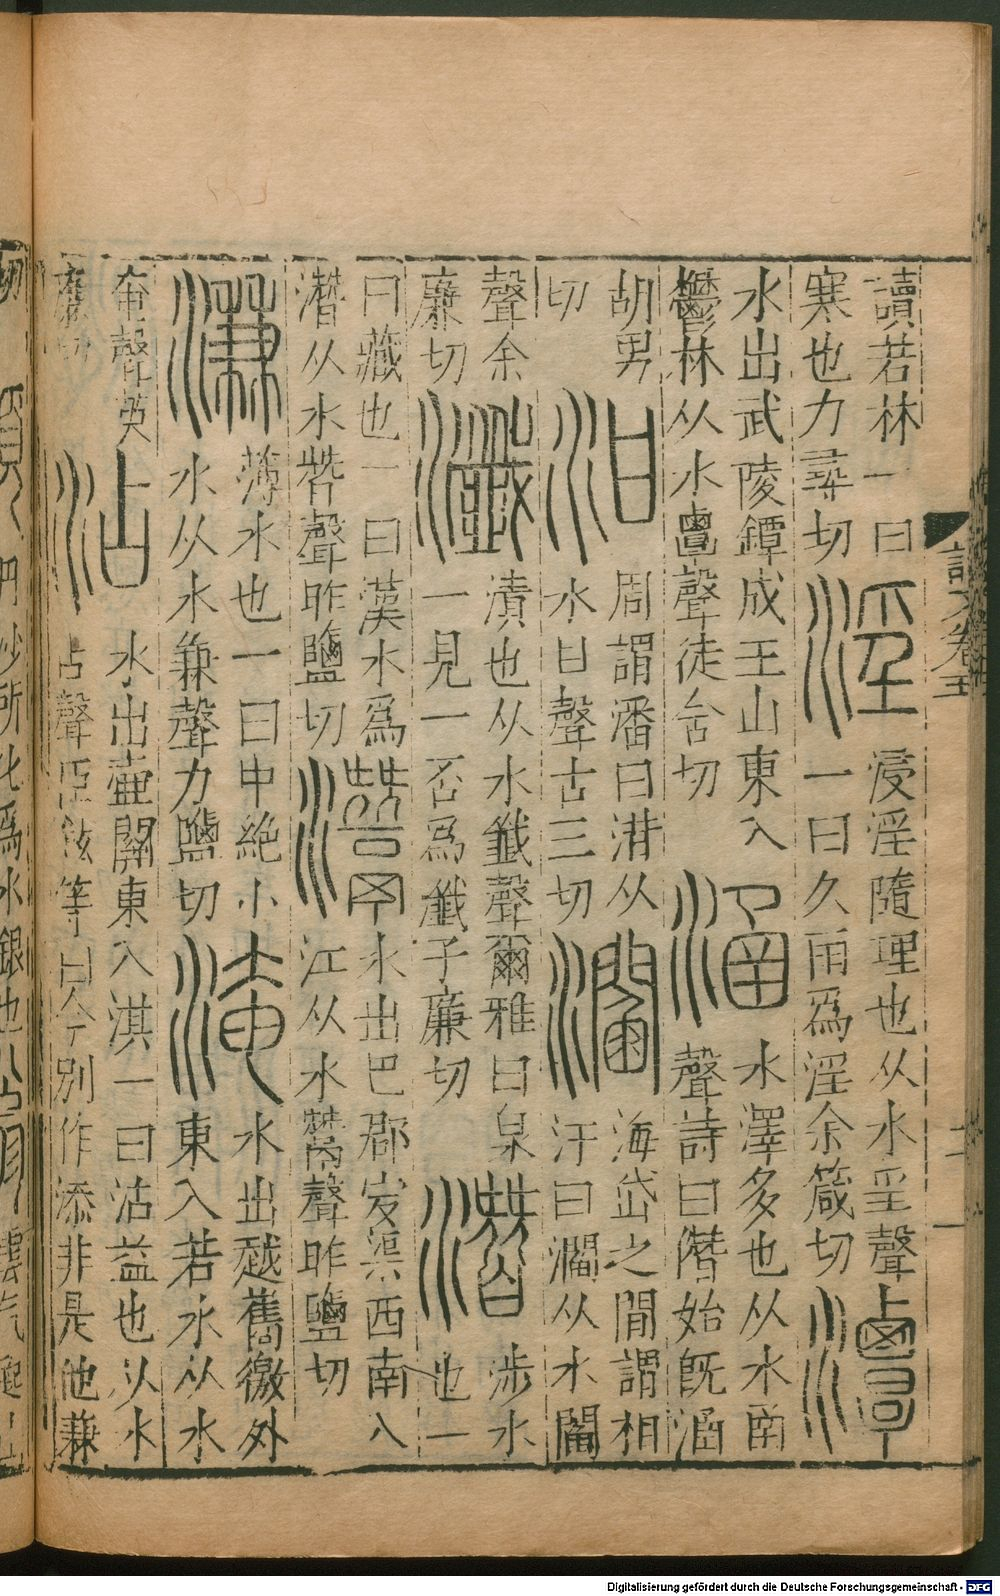 讀若林一曰
寒也力尋切
淫
㴆淫隨理也从水㸒聲
一曰久雨爲淫余箴切
潭
水出武陵鐔成王山東入
鬱林从水𪉷聲徒含切
涵
水澤多也从水圅
聲詩曰僭始旣涵
胡男
切
泔
周謂潘曰泔从
水甘聲古三切
濶
海岱之間謂相
汙曰濶从水閻
聲余
廉切
瀸
漬也从水韱聲爾雅曰泉
一見一否爲瀸子廉切
潛
涉水
也一
曰藏也一曰漢水爲
潛从水朁聲昨鹽切
灊
水出巴郡宕渠西南入
江从水鬵聲昨鹽切
溓
薄水也一曰中絶小
水从水兼聲力鹽切
淹
水出越巂徼外
東入若水从水
奄聲英
廉切
沾
水出壷關東入淇一曰沾益也从水
占聲臣鉉等曰今別作添非是他兼
說文卷十一
Digitalisierung gefördert durch die Deutsche Forschungsgemeinschaft - DFG